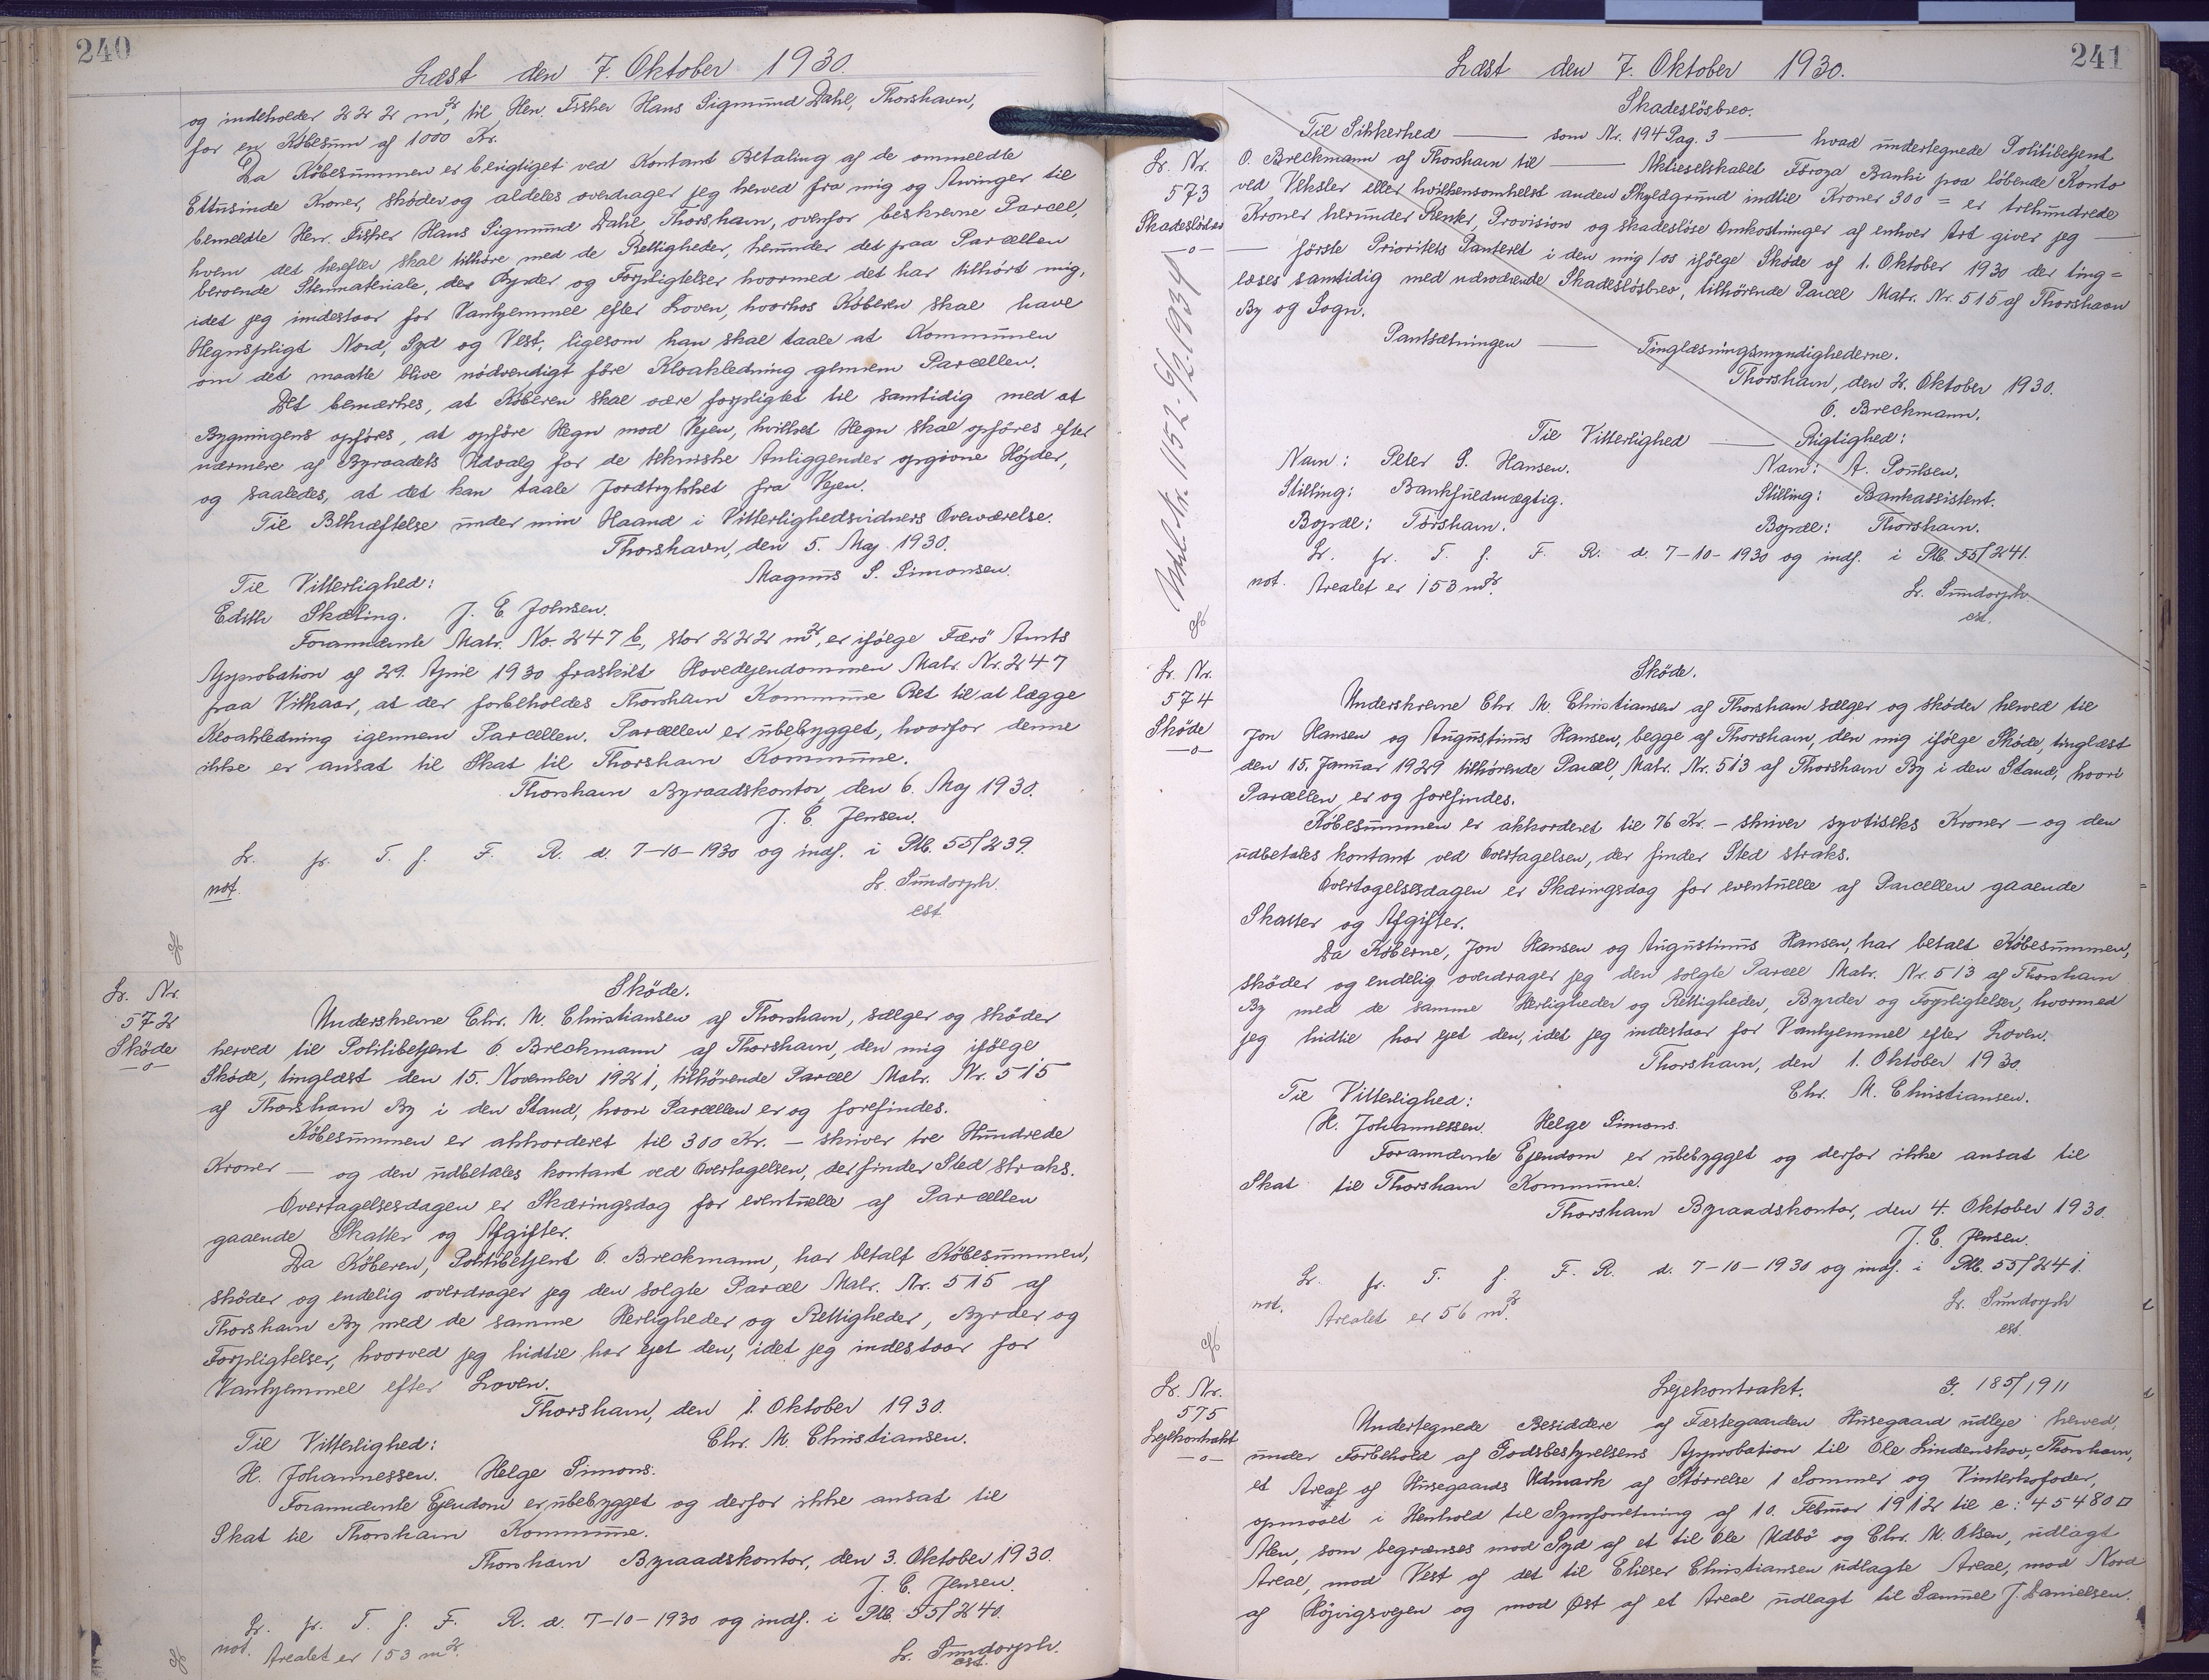 240
Læst den 7. Oktober 1930.
og indeholder 222 m², til Herr. Fisker Hans Sigmund Dahl, Thorshavn,
for en Købesum af 1000 Kr.
Da Købesummen er berigtiget ved Kontant Betaling af de ommeldte
Ettusinde Kroner, skøder og aldeles overdrager jeg herved fra mig og Arvinger til
bemeldte Herr. Fisker Hans Sigmund Dahl, Thorshavn, ovenfor beskrevne Parcel,
hvem det herefter skal tilhøre med de Rettigheder, herunder det paa Parcellen
beroende Stenmateriale, de Byrder og Forpligtelser hvormed det har tilhørt mig,
idet jeg indestaar for Vanhjemmel efter Loven, hvorhos Køberen skal have
Hegnspligt Nord, Syd og Vest, ligesom han skal taale at Kommunen
om det maatte blive nødvendigt føre Kloakledning gennem Parcellen.
Det bemærkes, at Køberen skal være forpligtet til samtidig med at
Bygningens opføres, at opføre Hegn mod Vejen, hvilket Hegn skal opføres efter
nærmere af Byraadets Udvalg for de tekniske Anliggender opgivne Højder,
og saaledes, at det kan taale Jordtrykket fra Vejen.
Til Bekræftelse under min Haand i Vitterlighedsvidners Overværelse.
Thorshavn, den 5. Maj 1930.
Magnus S. Simonsen.
Til Vitterlighed:
Edith Skæling. J. E Johnsen.
Forannævnte Matr. No. 247 b, stor 222 m², er ifølge Færø Amts
Approbation af 29. April 1930 fraskilt Hovedejendommen Matr. Nr. 247
paa Vilkaar, at der forbeholdes Thorshavn Kommune Ret til at lægge
Kloakledning igennem Parcellen. Parcellen er ubebygget, hvorfor denne
ikke er ansat til Skat til Thorshavn Kommune.
Thorshavn Byraadskontor, den 6. Maj 1930.
J. C. Jensen.
L. fr. T. f. F. R. d. 7-10-1930 og indf. i Ptb. 55/239.
not.
L. Sundorph.
cst.
L. Nr.
572
Skøde
-o-
Skøde.
Underskrevne Chr. M. Christiansen af Thorshavn, sælger og skøder
herved til Politibetjent O. Breckmann af Thorshavn, den mig ifølge
Skøde, tinglæst den 15. November 1921, tilhørende Parcel Matr. Nr. 515
af Thorshavn By i den Stand, hvori Parcellen er og forefindes.
Købesummen er akkorderet til 300 Kr. — skriver tre Hundrede
Kroner — og den udbetales kontant ved Overtagelsen, der finder Sted straks.
Overtagelsesdagen er Skæringsdag for eventuelle af Parcellen
gaaende Skatter og Afgifter.
Da Køberen, Politibetjent O. Breckmann, har betalt Købesummen,
skøder og endelig overdrager jeg den solgte Parcel Matr. Nr. 515 af
Thorshavn By med de samme Herligheder og Rettigheder, Byrder og
Forpligtelser, hvorved jeg hidtil har ejet den, idet jeg indestaar for
Vanhjemmel efter Loven.
Thorshavn, den 1. Oktober 1930.
Chr. M. Christiansen.
Til Vitterlighed:
H. Johannessen. Helge Simons.
Forannævnte Ejendom er ubebygget og derfor ikke ansat til
Skat til Thorshavn Kommune.
Thorshavn Byraadskontor, den 3. Oktober 1930.
J. C. Jensen.
L. fr. T. f. F. R. d. 7-10-1930 og indf. i Ptb. 55/240.
not. Arealet er 153 m².
L. Sundorph.
cst.
241
Læst den 7. Oktober 1930.
L. Nr.
573
Skadesløsbr
-o-
Skadesløsbrev.
Til Sikkerhed — som Nr. 194 Pag. 3 — hvad undertegnede Politibetjent
O. Breckmann af Thorshavn til — Aktieselskabet Føroya Banki paa løbende Konto
ved Veksler eller hvilkensomhelst anden Skyldgrund indtil Kroner 300 = er trehundrede
Kroner herunder Renter, Provision og skadesløse Omkostninger af enhver Art giver jeg —
— første Prioritets Panteret i den mig/os ifølge Skøde af 1. Oktober 1930 der ting=
læses samtidig med nærværende Skadesløsbrev, tilhørende Parcel Matr. Nr. 515 af Thorshavn
By og Sogn.
Pantsætningen — Tinglæsningsmyndighederne.
Thorshavn, den 2. Oktober 1930.
O. Breckmann.
Til Vitterlighed — Rigtighed:
Navn: Peter S. Hansen. Navn: A. Poulsen.
Stilling: Bankfuldmægtig. Stilling: Bankassistent.
Bopæl: Torshavn. Bopæl: Thorshavn.
L. fr. T. f. F. R. d. 7-10-1930 og indf. i Ptb. 55/241.
not. Arealet er 153 m².
L. Sundorph
cst.
L. Nr.
574
Skøde
-o-
Skøde.
Underskrevne Chr. M. Christiansen af Thorshavn sælger og skøder herved til
Jon Hansen og Augustinus Hansen, begge af Thorshavn, den mig ifølge Skøde, tinglæst
den 15. Januar 1929 tilhørende Parcel, Matr. Nr. 513 af Thorshavn By i den Stand, hvori
Parcellen er og forefindes.
Købesummen er akkorderet til 76 Kr. — skriver syvtiseks Kroner — og den
udbetales kontant ved Overtagelsen, der finder Sted straks.
Overtagelsesdagen er Skæringsdag for eventuelle af Parcellen gaaende
Skatter og Afgifter.
Da Køberne, Jon Hansen og Augustinus Hansen, har betalt Købesummen,
skøder og endelig overdrager jeg den solgte Parcel Matr. Nr. 513 af Thorshavn
By med de samme Herligheder og Rettigheder, Byrder og Forpligtelser, hvormed
jeg hidtil har ejet den, idet jeg indestaar for Vanhjemmel efter Loven.
Thorshavn, den 1. Oktober 1930.
Chr. M. Christiansen.
Til Vitterlighed:
H. Johannessen. Helge Simons.
Forannævnte Ejendom er ubebygget og derfor ikke ansat til
Skat til Thorshavn Kommune.
Thorshavn Byraadskontor, den 4. Oktober 1930.
J. C. Jensen.
L. fr. T. f. F. R. d. 7-10-1930 og indf. i Ptb. 55/241.
not. Arealet er 56 m².
L. Sundorph
cst.
L. Nr.
575
Lejekontrakt
-o-
Lejekontrakt. G. 185/1911
Undertegnede Besiddere af Fæstegaarden Husegaard udleje herved,
under Forbehold af Godsbestyrelsens Approbation til Ole Lindenskov, Thorshavn,
et Areal af Husegaards Udmark af Størrelse 1 Sommer og Vinterkofoder,
opmaalt i Henhold til Synsforretning af 10. Februar 1912 til c: 45480 □
Alen, som begrænses mod Syd af et til Ole Udbø og Chr. M. Olsen, udlagt
Areal, mod Vest af det til Elieser Christiansen udlagte Areal, mod Nord
af Højvigsvejen og mod Øst af et Areal udlagt til Samuel J. Danielsen.